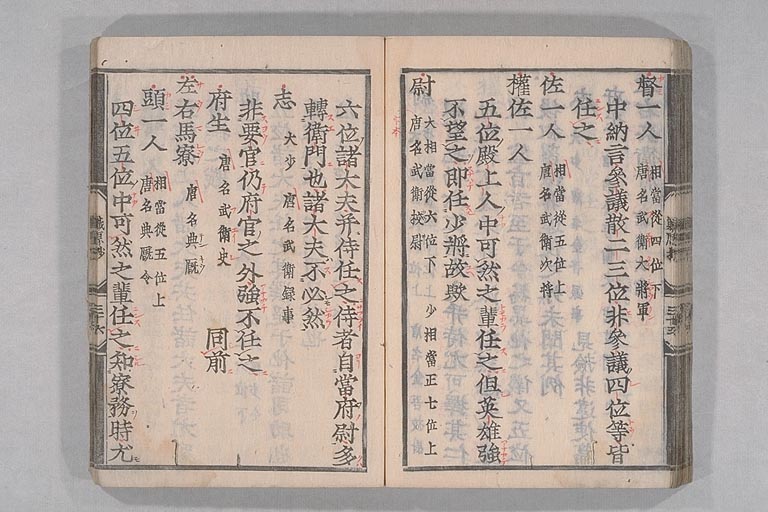 督一人 相當從四位下
唐名武衛大將軍
中納言參議散二三位非參議四位等皆
任之
佐一人 相當從五位上
唐名武衛次將
權佐一人
五位殿上人中可然之輩任之但英雄強
不望之即任少將故歟
尉 大相當從六位下 少相當正七位上
唐名武衛校尉
六位諸大夫并侍任之侍者自當府尉多
轉衛門也諸大夫不必然
志 大少 唐名武衛録事
非要官仍府官之外強不任之
府生 唐名武衛史 同前
左右馬寮 唐名典厩
頭一人 相當從五位上
唐名典厩令
四位五位中可然之輩任之知寮務時尤